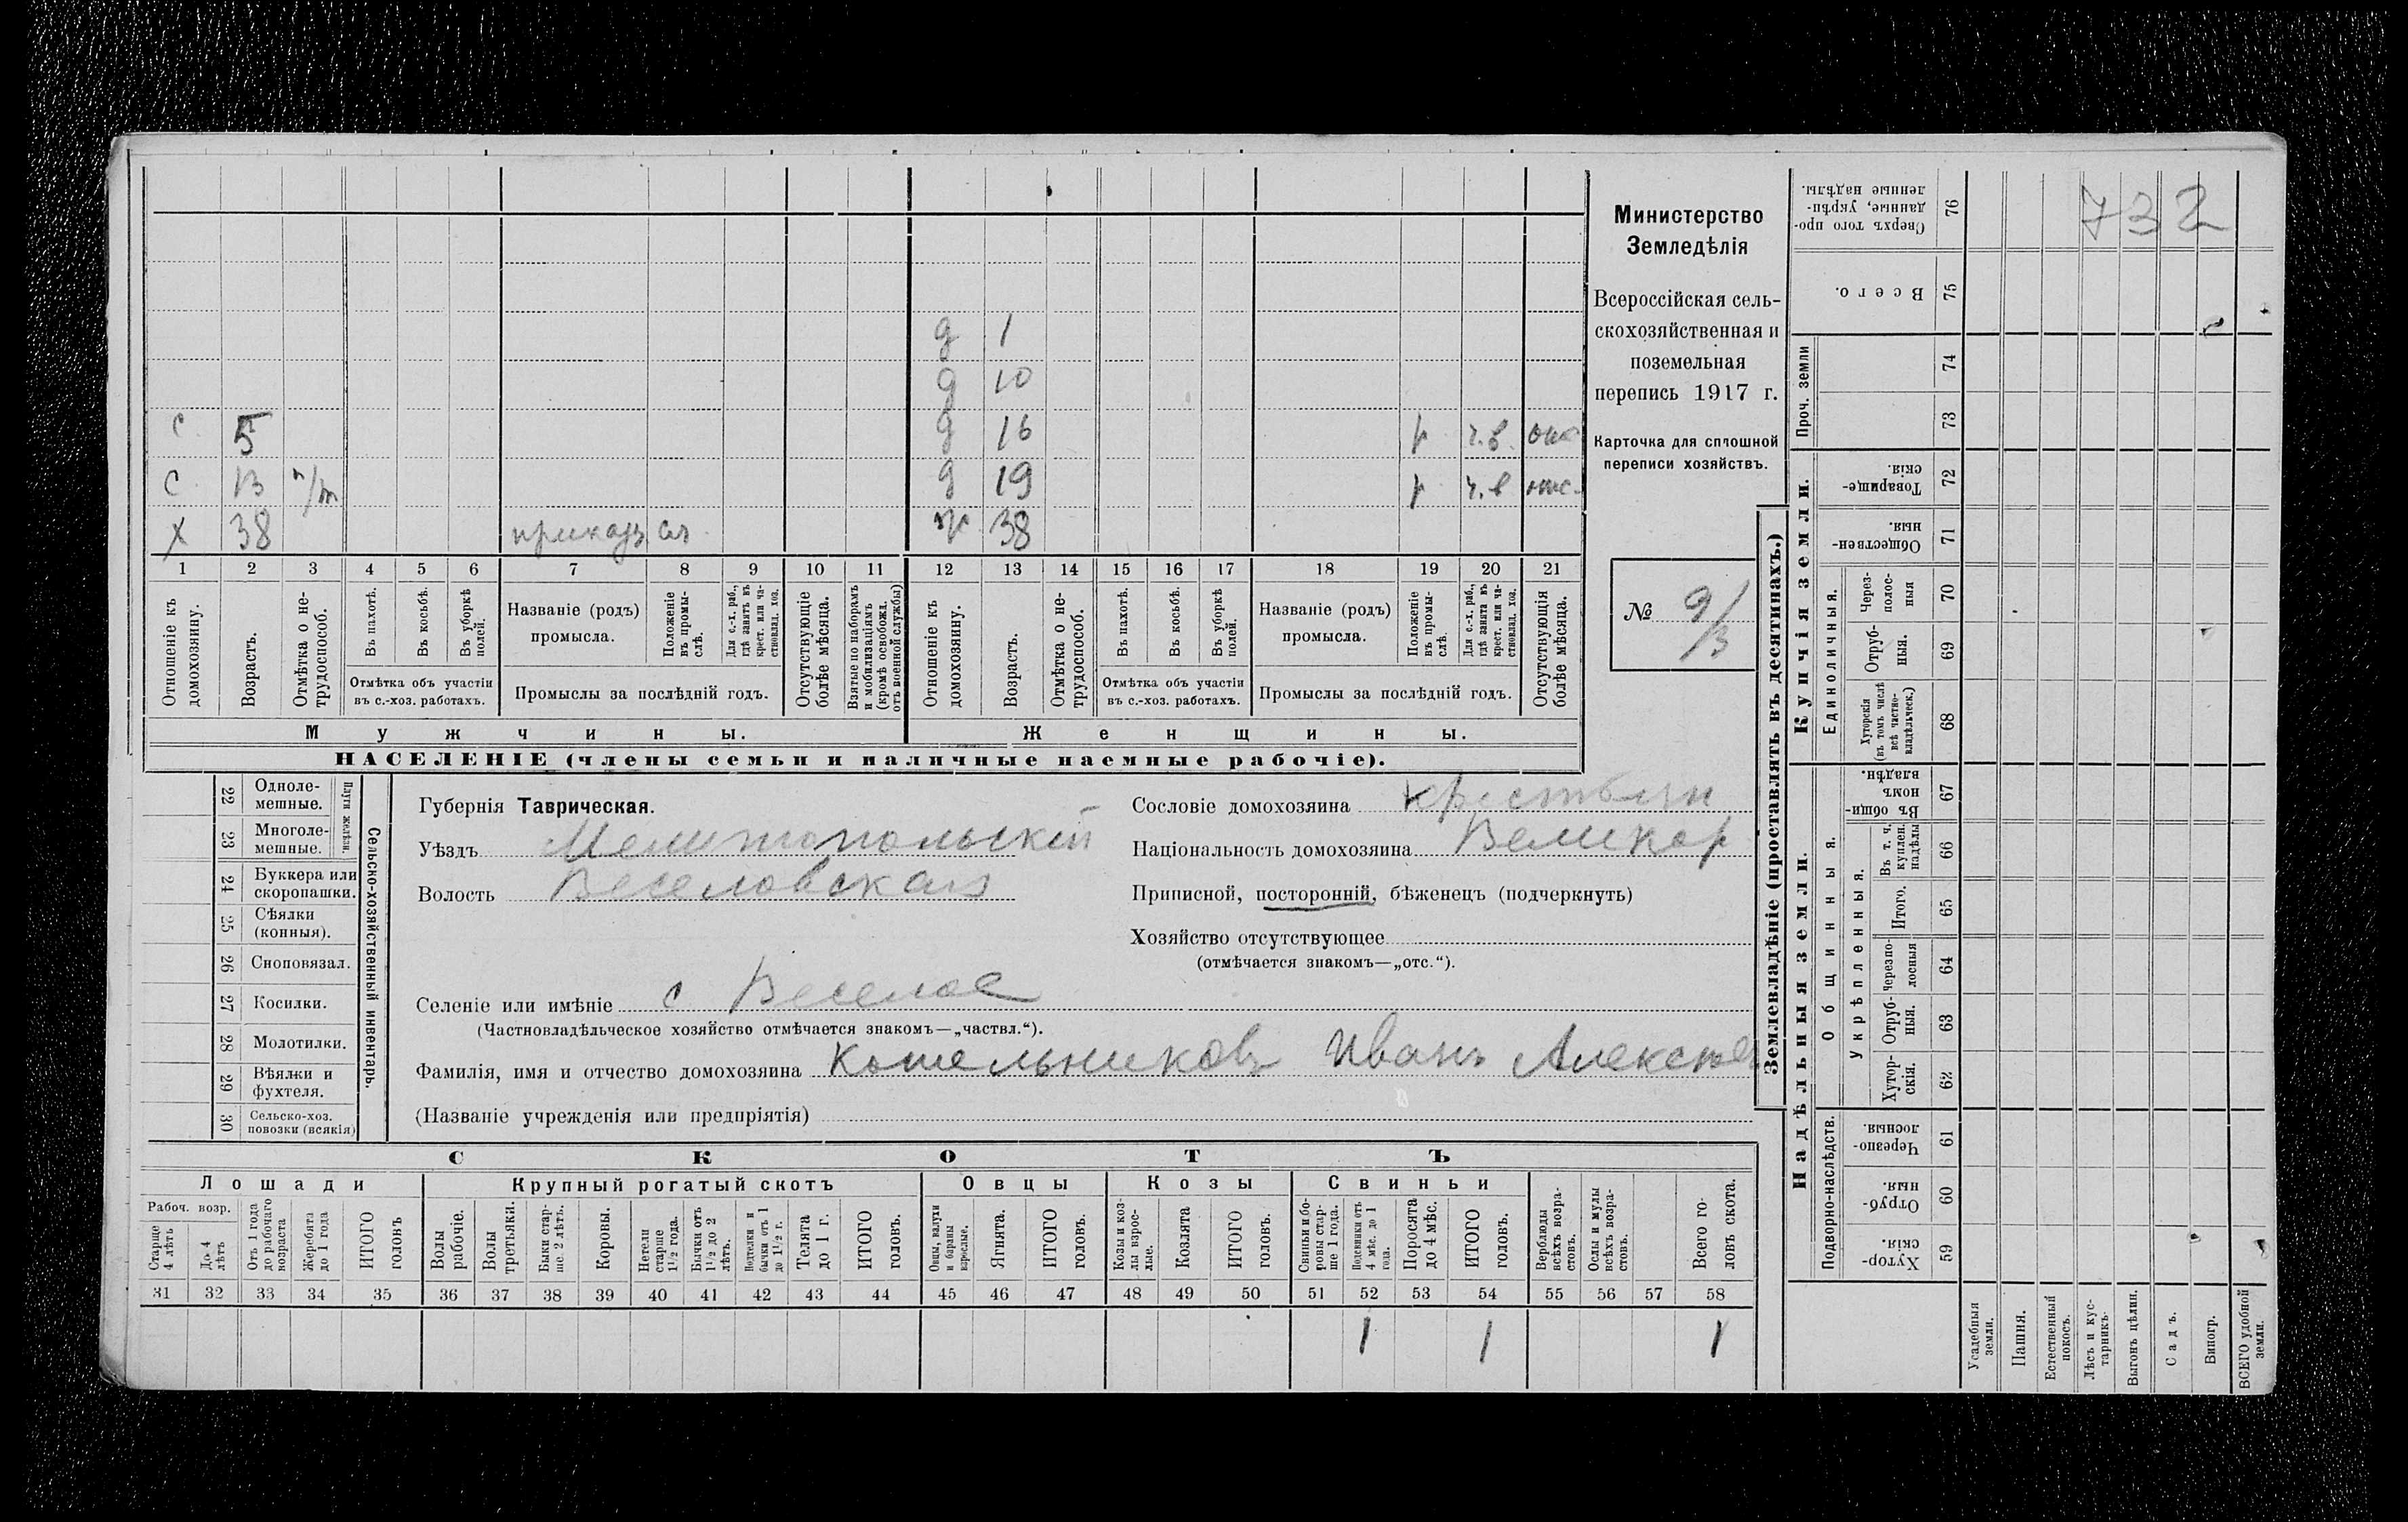 732
Министерство
Земледѣлія
Всероссійская сель-
скохозяйственная и
поземельная
перепись 1917 г.
Карточка для сплошной
переписи хозяйствъ.
№ 91/3
д 1
д 10
с 5 д 16 р ч.в.
с 13 д 19 р ч.в
х 38 приказ ж 38
1 2 3 4 5 6 7 8 9 10 11 12 13 14 15 16 17 18 19 20 21
Отношеніе къ домохозяину.
Возрастъ.
Отмѣтка о не-трудоспособ.
Въ пахотѣ.
Въ косьбѣ.
Въ уборкѣ полей.
Отмѣтка объ участіи въ с.-хоз. работахъ.
Названіе (родъ) промысла.
Положеніе въ промы-слѣ.
Для с.-х. раб., гдѣ занятъ въ крест. или ча-стновлад. хоз.
Промыслы за послѣдній годъ.
Отсутствующіе болѣе мѣсяца.
Взятые по наборамъ и мобилизаціямъ (кромѣ освобожд. отъ военной службы)
Отношеніе къ домохозяину.
Возрастъ.
Отмѣтка о не-трудоспособ.
Въ пахотѣ.
Въ косьбѣ.
Въ уборкѣ полей.
Отмѣтка объ участіи въ с.-хоз. работахъ.
Названіе (родъ) промысла.
Положеніе въ промы-слѣ.
Для с.-х. раб., гдѣ занята въ крест. или ча-стновлад. хоз.
Промыслы за послѣдній годъ.
Отсутствующія болѣе мѣсяца.
Мужчины. Женщины.
НАСЕЛЕНІЕ (члены семьи и наличные наемные рабочіе).
22 Одноле-мешные.
23 Многоле-мешные.
Плуги желѣзн.
24 Буккера или скоропашки.
25 Сѣялки (конныя).
26 Сноповязал.
27 Косилки.
28 Молотилки.
29 Вѣялки и фухтеля.
30 Сельско-хоз. повозки (всякія)
Сельско-хозяйственный инвентарь.
Губернія Таврическая.
Уѣздъ Мелитопольскій
Волость Веселовская
Сословіе домохозяина крестьян
Національность домохозяина Великор
Приписной, посторонній, бѣженецъ (подчеркнуть)
Хозяйство отсутствующее
(отмѣчается знакомъ—„отс.“).
Селеніе или имѣніе с Веселое
(Частновладѣльческое хозяйство отмѣчается знакомъ—„частвл.“).
Фамилія, имя и отчество домохозяина Котельниковъ Иванъ Алексѣев
(Названіе учрежденія или предпріятія)
СКОТЪ
Лошади Крупный рогатый скотъ Овцы Козы Свиньи
Рабоч. возр.
Старше 4 лѣтъ
До 4 лѣтъ
Отъ 1 года до рабочаго возраста
Жеребята до 1 года
ИТОГО головъ
Волы рабочіе.
Волы третьяки.
Быки стар-ше 2 лѣтъ.
Коровы.
Нетели старше 1 1/2 года.
Бычки отъ 1 1/2 до 2 лѣтъ.
Подтелки и бычки отъ 1 до 1 1/2 г.
Телята до 1 г.
ИТОГО головъ.
Овцы, валухи и бараны взрослые.
Ягнята.
ИТОГО головъ.
Козы и коз-лы взрос-лые.
Козлята
ИТОГО головъ.
Свиньи и бо-ровы стар-ше 1 года.
Подсвинки отъ 4 мѣс. до 1 года.
Поросята до 4 мѣс.
ИТОГО головъ.
Верблюды всѣхъ возра-стовъ.
Ослы и мулы всѣхъ возра-стовъ.
Всего го-ловъ скота.
31 32 33 34 35 36 37 38 39 40 41 42 43 44 45 46 47 48 49 50 51 52 53 54 55 56 57 58
1 1 1
Землевладѣніе (проставлять въ десятинахъ.)
Купчія земли.
Надѣльныя земли.
Сверхъ того про-данные, укрѣп-ленные надѣлы. 76
Всего. 75
Проч. земли
74
73
Товарище-скія. 72
Обществен-ныя. 71
Единоличныя.
Через-полос-ныя 70
Отруб-ныя. 69
Хуторскія (въ томъ числѣ всѣ частно-владѣльческ.) 68
Общинныя.
Въ общи-номъ владѣн. 67
Укрѣпленныя.
Въ т. ч. куплен. надѣлы 66
Итого. 65
Черезпо-лосныя 64
Отруб-ныя. 63
Хутор-скія. 62
Подворно-наслѣдств.
Черезпо-лосныя. 61
Отруб-ныя. 60
Хутор-скія. 59
Усадебныя земли.
Пашня.
Естественный покосъ.
Лѣсъ и кус-тарникъ.
Выгонъ цѣлин.
Садъ.
Виногр.
ВСЕГО удобной земли.